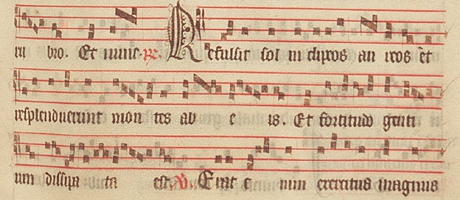 ru bro. Et nunc. ps. Refulsit sol in clipeos au reos et
resplenduerunt mon tes ab e is. Et fortitudo genti
um dissipa ta est. V. Erat e nim exercitus magnus